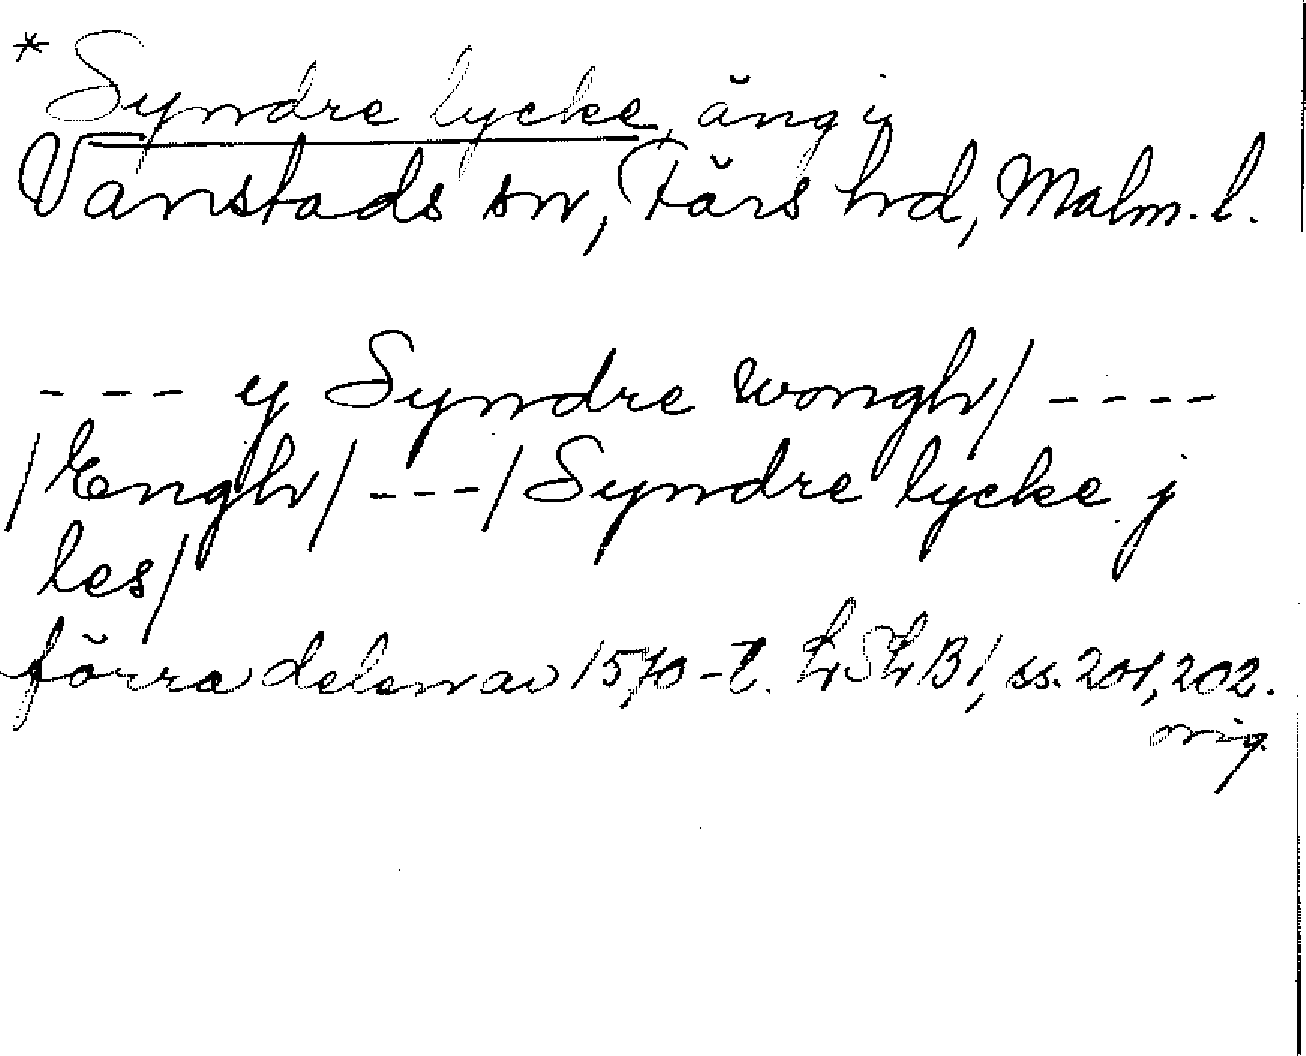 * Syndre lycke, äng i
Vanstads sn, Färs hrd, Malm. l.
- - - y Syndre wongh/ - - - -
/Lengh/ - - - / Syndre lycke j
les/
förra delen av 1570-t. LSLB 1, ss. 201, 202.
orig.